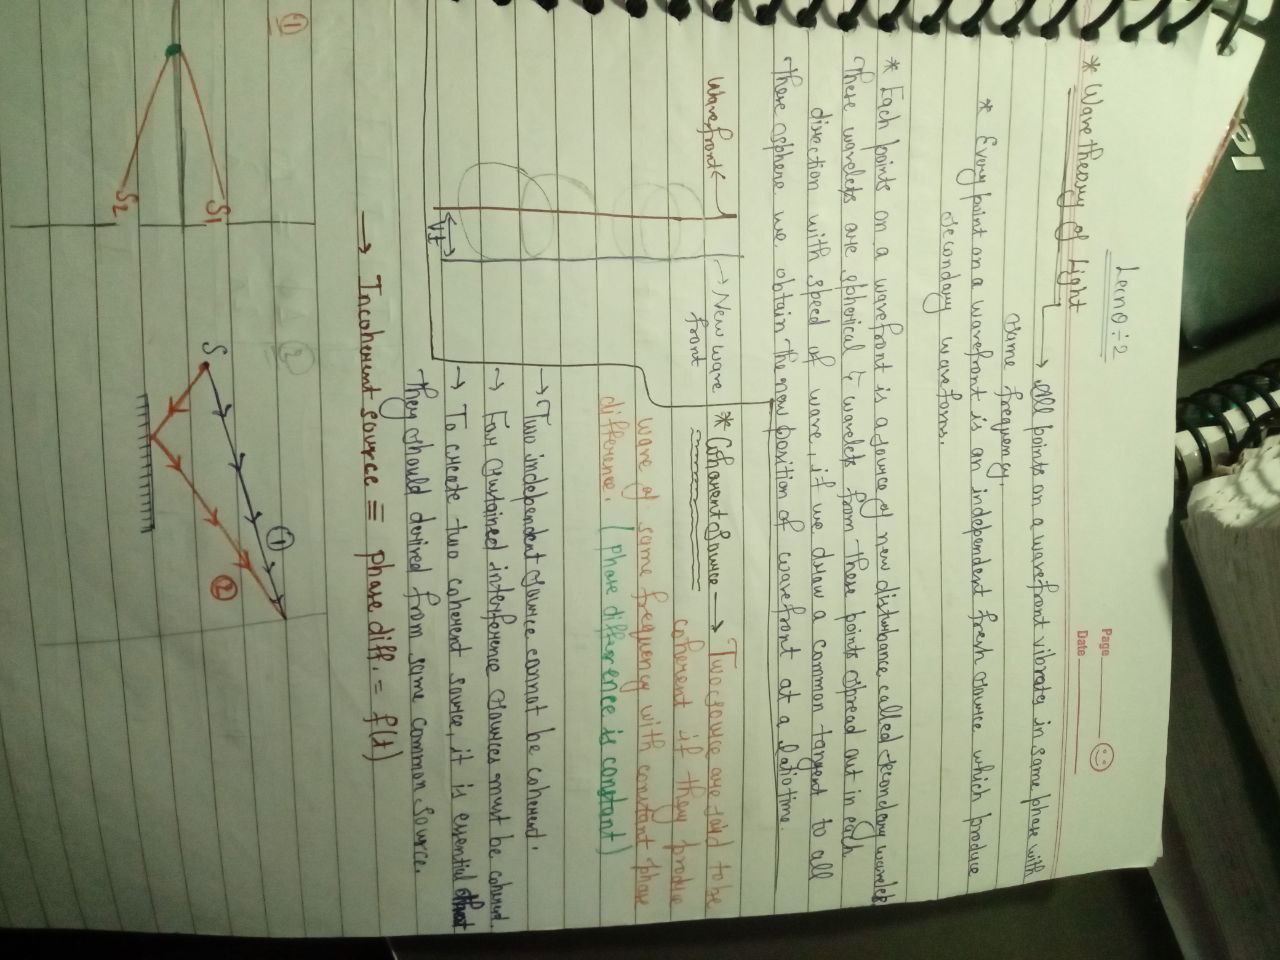 Page
Date
Lecno ÷ 2
* Wave theory of Light
→ All points on a wavefront vibrates in same phase with
same frequency.
* Every point on a wavefront is an independent fresh source which produce
secondary waveforms.
* Each points on a wavefront is a source of new disturbance called secondary wavelets
These wavelets are spherical & wavelets from these points spread out in each
direction with speed of wave, if we draw a common tangent to all
these sphere we obtain the new position of wavefront at a time.
Wavefront ←
→ New wave
front
vt
* Coherent Source → Two source are said to be
coherent if they produce
wave of same frequency with constant phase
difference. (phase difference is constant)
→ Two independent source cannot be coherent.
→ For sustained interference sources must be coherent.
→ To create two coherent source, it is essential that
they should derived from same common source.
→ Incoherent source ≡ phase diff. = f(t)
①
S1
S2
②
S
①
②